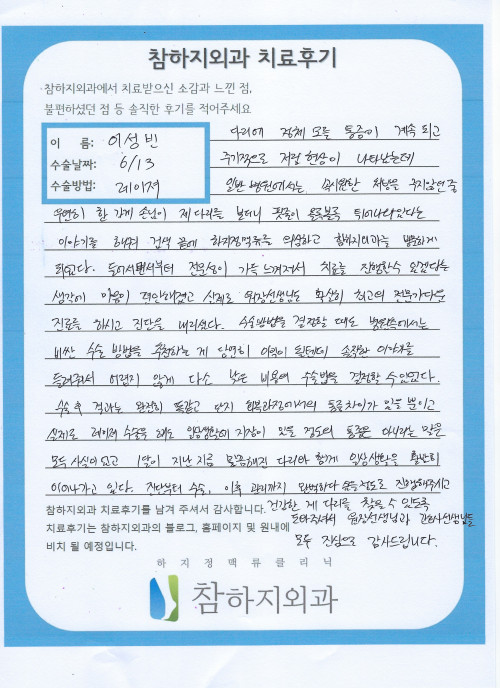 참하지외과 치료후기
참하지외과에서 치료받으신 소감과 느낀 점,
불편하셨던 점 등 솔직한 후기를 적어주세요
이 름: 이성빈
수술날짜: 6/13
수술방법: 레이저
다리에 정체 모를 통증이 계속 되고
주기적으로 저림 현상이 나타났는데
일반 병원에서는 속시원한 처방을 주지않던 중
우연히 한 가게 손님이 제 다리를 보더니 핏줄이 울룩불룩 튀어나와있다는
이야기를 해줘서 검색 끝에 하지정맥류를 의심하고 참하지외과를 방문하게
되었다. 들어서면서부터 전문성이 가득 느껴져서 치료를 진행할수 있겠다는
생각에 마음이 편안해졌고 실제로 원장선생님도 확실히 최고의 전문가다운
진료를 하시고 진단을 내리셨다. 수술방법을 결정할 때도 병원측에서는
비싼 수술 방법을 추천하는 게 당연히 이익이 될텐데 솔직한 이야기를
들려주셔서 어렵지 않게 다소 낮은 비용의 수술방법을 결정할 수 있었다.
수술 후 결과는 완전히 똑같고 단지 회복과정에서의 통증차이가 있을 뿐이고
실제로 레이저 수술을 해도 일상생활에 지장이 있을 정도의 통증은 아니라는 말은
모두 사실이었고 1달이 지난 지금 말끔해진 다리와 함께 일상생활을 활발히
이어나가고 있다. 진단부터 수술, 이후 관리까지 완벽하다 느낄정도로 진행해주시고
건강한 제 다리를 찾을 수 있도록
도와주셔서 원장선생님과 간호사선생님들
모두 진심으로 감사드립니다.
참하지외과 치료후기를 남겨 주셔서 감사합니다.
치료후기는 참하지외과의 블로그, 홈페이지 및 원내에
비치 될 예정입니다.
하지정맥류클리닉
참하지외과